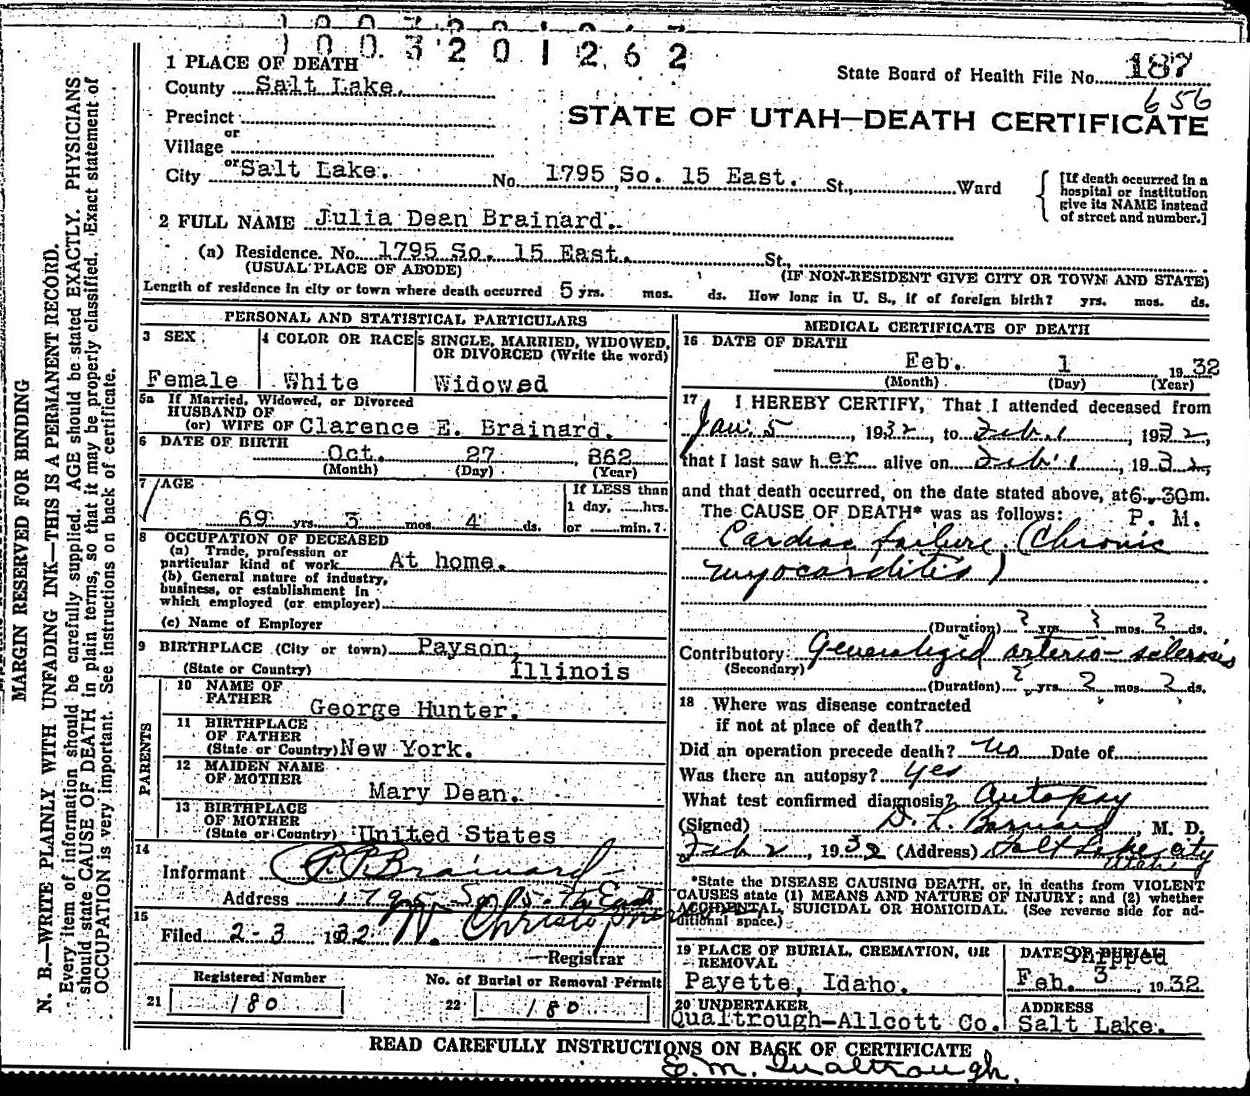 1003201262
1 PLACE OF DEATH
State Board of Health File No. 187
County Salt Lake.
656
Precinct
STATE OF UTAH—DEATH CERTIFICATE
or
Village
or
City Salt Lake. No. 1795 So. 15 East. St., Ward
[If death occurred in a
hospital or institution
give its NAME instead
of street and number.]
2 FULL NAME Julia Dean Brainard.
(a) Residence. No. 1795 So. 15 East. St.,
(USUAL PLACE OF ABODE) (IF NON-RESIDENT GIVE CITY OR TOWN AND STATE)
Length of residence in city or town where death occurred 5 yrs. mos. ds. How long in U. S., if of foreign birth? yrs. mos. ds.
PERSONAL AND STATISTICAL PARTICULARS
3 SEX
Female
4 COLOR OR RACE
White
5 SINGLE, MARRIED, WIDOWED,
OR DIVORCED (Write the word)
Widowed
5a If Married, Widowed, or Divorced
HUSBAND OF
(or) WIFE OF Clarence E. Brainard.
6 DATE OF BIRTH
Oct. 27 , 862
(Month) (Day) (Year)
7 AGE
69 yrs. 3 mos. 4 ds.
If LESS than
1 day, hrs.
or min.?
8 OCCUPATION OF DECEASED
(a) Trade, profession or
particular kind of work At home.
(b) General nature of industry,
business, or establishment in
which employed (or employer)
(c) Name of Employer
9 BIRTHPLACE (City or town) Payson,
(State or Country) Illinois
PARENTS
10 NAME OF
FATHER George Hunter.
11 BIRTHPLACE
OF FATHER
(State or Country) New York.
12 MAIDEN NAME
OF MOTHER
Mary Dean.
13 BIRTHPLACE
OF MOTHER
(State or Country) United States
14
Informant Brainard
Address 1795 S. 15th East
15
Filed 2-3 1932
—Registrar
Registered Number
21 180
No. of Burial or Removal Permit
22 180
MEDICAL CERTIFICATE OF DEATH
16 DATE OF DEATH
Feb. 1 , 1932
(Month) (Day) (Year)
17 I HEREBY CERTIFY, That I attended deceased from
Jan. 5 , 1932, to Feb. 1 , 1932,
that I last saw her alive on Feb. 1 , 1932,
and that death occurred, on the date stated above, at 6.30m.
The CAUSE OF DEATH* was as follows: P. M.
Cardiac failure (Chronic
myocarditis)
(Duration) ? yrs. ? mos. ? ds.
Contributory Generalized arterio-sclerosis
(Secondary)
(Duration) ? yrs. ? mos. ? ds.
18 Where was disease contracted
if not at place of death?
Did an operation precede death? No Date of
Was there an autopsy? yes
What test confirmed diagnosis? Autopsy
(Signed) D. L. Barnard, M. D.
Feb 2 , 1932 (Address) Salt Lake City
Utah
*State the DISEASE CAUSING DEATH, or, in deaths from VIOLENT
CAUSES state (1) MEANS AND NATURE OF INJURY; and (2) whether
ACCIDENTAL, SUICIDAL OR HOMICIDAL. (See reverse side for ad-
ditional space.)
19 PLACE OF BURIAL, CREMATION, OR
REMOVAL
Payette, Idaho.
DATE OF BURIAL
Shipped
Feb. 3 , 1932
20 UNDERTAKER
Qualtrough-Allcott Co.
ADDRESS
Salt Lake.
READ CAREFULLY INSTRUCTIONS ON BACK OF CERTIFICATE
E. M. Qualtrough.
MARGIN RESERVED FOR BINDING
N. B.—WRITE PLAINLY WITH UNFADING INK—THIS IS A PERMANENT RECORD.
Every item of information should be carefully supplied. AGE should be stated EXACTLY. PHYSICIANS
should state CAUSE OF DEATH in plain terms, so that it may be properly classified. Exact statement of
OCCUPATION is very important. See instructions on back of certificate.